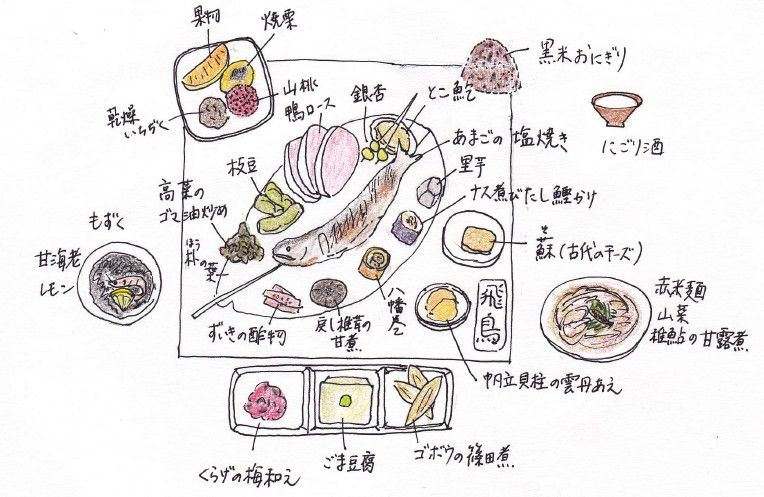 果物
焼栗
山桃
乾燥
いちぢく
鴨ロース
銀杏
とこ鮑
黒米おにぎり
にごり酒
あまごの塩焼き
里芋
ナス煮びたし鰹かけ
そ
蘇(古代のチーズ)
枝豆
高菜の
ゴマ油炒め
ほう
朴の葉
もずく
甘海老
レモン
ずいきの酢物
戻し椎茸の
甘煮
八幡巻
飛鳥
帆立貝柱の雲丹あえ
赤米麺
山菜
稚鮎の甘露煮
くらげの梅和え
ごま豆腐
ゴボウの篠田煮